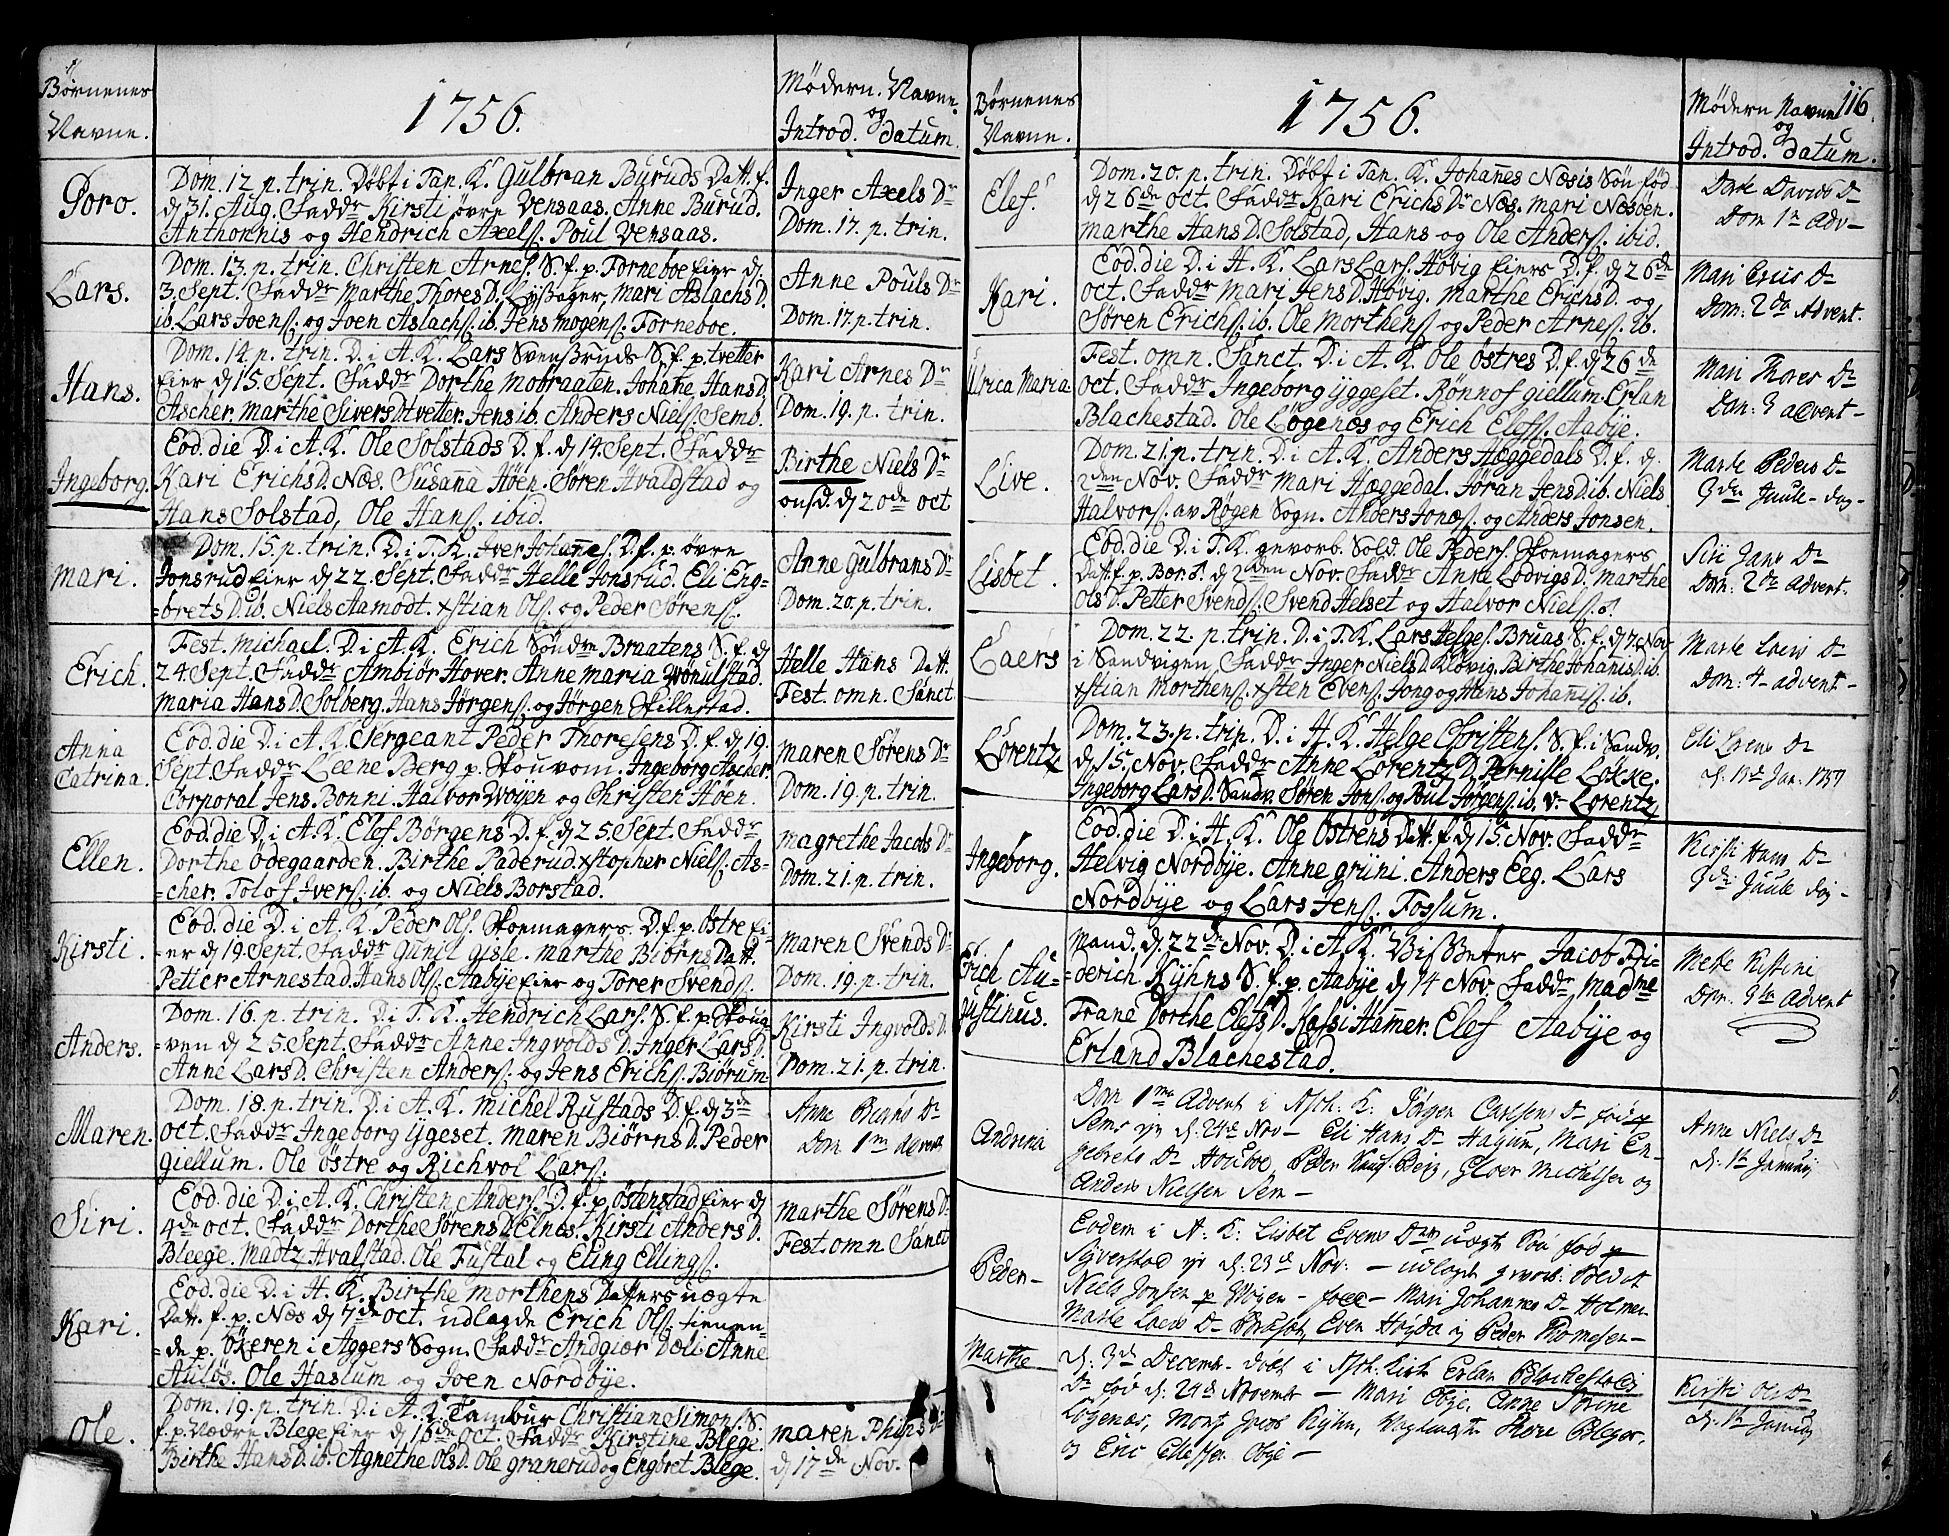 Børnenes
Navne.
1756.
Mødern. Navne.
og
Introd. datum.
Goro.
Dom. 12. p. trin. Døbt i Tan. K. Gulbran Buruds Datt. f.
d 31. Aug. Faddr Kirsti øvre Vensaas. Anne Burud.
Anthonnis og Hendrich Axels. Poul Vensaas.
Inger Axels Dr
Dom. 17. p. trin.
Lars.
Dom. 13. p. trin. Christen Arnes. S. f. p. Torneboe eier d.
3. Sept. Faddr Marthe Thores D. Lysager, Mari Aslachs D.
ib. Lars Joens. og Joen Aslachs. ib. Jens Mogens. Torneboe.
Anne Pouls Dr
Dom. 17. p. trin.
Hans.
Dom. 14. p. trin. D. i A. K. Lars Svensruds S. f. p. tvetter
eier d 15. Sept. Faddr Dorthe Mobraaten. Johanne Hans D.
Ascher. Marthe Sivers D. tvetter. Jens ib. Anders Niels. Semb.
Kari Arnes Dr
Dom. 19. p. trin.
Ingeborg.
Eod. die D. i A. K. Ole Solstads D. f. d 14. Sept. Faddr
Kari Erichs D. Næs. Susanna Høen. Søren Hvaldstad og
Hans Solstad, Ole Hans. ibid.
Birthe Niels Dr
onsd. d 20de oct
Mari.
Dom. 15. p. trin. D. i T. K. Iver Johannes. D. f. p. øvre
Jonsrud eier d 22. Sept. Faddr Helle Jonsrud. Eli Eng-
-brets D. ib. Niels Aamodt. xstian Ols. og Peder Sørens.
Anne Gulbrans Dr
Dom. 20. p. trin.
Erich.
Fest. Michael. D. i A. K. Erich Søndre Braatens S. f. d
24. Sept. Faddr Ambiør Hover. Anne Maria Wønulstad.
Maria Hans D. Solberg. Hans Jørgens. og Jørgen Skillestad.
Helle Hans Datt.
Fest. omn. Sanct
Anna
Catrina.
Eod. die D. i A. K. Sergeant Peder Thoresens D. f. d 19.
Sept. Faddr Leene Berg p. Skouvom. Ingeborg Ascher.
Corporal Jens Bonni. Halvor Wøyen og Christen Høen.
Maren Sørens Dr
Dom. 19. p. trin.
Ellen.
Eod. die D. i A. K. Elef Børgens D. f. d 25. Sept. Faddr
Dorthe Ødegaarden. Birthe Paderud. xstopher Niels. As-
-cher. Tolof Ivers. ib. og Niels Borstad.
Magrethe Jacobs Dr
Dom. 21. p. trin.
Kirsti.
Eod. die D. i A. K. Peder Ols. Skoemagers D. f. p. østre ei-
-er d 19. Sept. Faddr Gunel Gisle. Marthe Biørns Datt.
Petter Arnestad. Hans Ols. Aabye eier og Torer Svends.
Maren Svends Dr
Dom. 19. p. trin.
Anders.
Dom. 16. p. trin. D. i T. K. Hendrich Lars. S. f. p. Skou-
-ven d 25. Sept. Faddr Anne Ingvolds D. Inger Lars D.
Anne Lars D. Christen Anders. og Jens Erichs. Biørum.
Kirsti Ingvolds D.
Dom. 21. p. trin.
Maren.
Dom. 18. p. trin. D. i A. K. Michel Rustads D. f. d 3de
Oct. Faddr Ingeborg Ygeset. Maren Biørns D. Peder
Giellum. Ole Østre og Richvol Lars.
Dom 1me Advent
Siri.
Eod. die D. i A. K. Christen Anders. D. f. p. Østenstad eier d
4de oct. Faddr Dorthe Sørens D. Elnes. Kirsti Anders D.
Bleege. Madtz Hvalstad. Ole Fustal og Eling Ellings.
Marthe Sørens D.
Fest. omn Sanct
Kari.
Eod. die D. i H. K. Birthe Morthens Datters uægte
Datt. f. p. Næs d 7de oct. udlagde Erich Ols. tienen-
-de p. Økeren i Aggers Sogn. Faddr Andgior Dæli. Anne
Auløs. Ole Haslum og Joen Nordbye.
Ole.
Dom. 19. p. trin. D. i A. K. Tambur Christian Simons. S.
f. p. Nedre Blege eier d 16de Oct. Faddr Kirstine Blege.
Birthe Hans D. ib. Agnethe Ols D. Ole Granerud og Engbret Blege.
Maren Philips Dr
d 17de Nov.
Børnenes
Navne.
1756.
Mødern Navne 116.
og
Introd. datum.
Elef.
Dom. 20. p. trin. Døbt i Tan. K. Johannes Næsis Søn fød
d 26de oct. Faddr Kari Erichs Dr Næs. Mari Næsøen.
Marthe Hans D. Solstad, Hans og Ole Anders. ibid.
Davids D
Dom 1n Adv-
Kari.
Eod. die D. i A. K. Lars Lars. Høvig eiers D. f. d 26de
oct. Faddr Mari Jens D. Høvig. Marthe Erichs D. og
Søren Erichs. ib. Ole Morthens. og Peder Arnes. ib.
Dom: 2da Advent.
Ulrica Maria.
Fest. omn. Sanct. D. i A. K. Ole Østres D. f. d 26de
oct. Faddr Ingeborg Yggeset. Rønnof Giellum. Erlan
Blachestad. Ole Løgenæs og Erich Elefs. Aabye.
Mari Thores D
Dom: 3 advent-
Live.
Dom. 21. p. trin. D. i A. K. Anders Hæggedals D. f. d.
2den Nov. Faddr Mari Hæggedal. Jøran Jens D. ib. Niels
Halvors. av Røgen Sogn. Anders Jonæs. og Anders Jonsen.
Peders D
3de Juule-dag-
Lisbet.
Eod. die D. i T. K. gevorb. Sold. Ole Peders. Skoemagers
Datt. f. p. Bor. d 2den Nov. Faddr Anne Lodvigs D. Marthe
Ols D. Petter Svends. Svend Helset og Halvor Niels.
Siri Jans D
Dom: 2de advent.
Laers
Dom. 22. p. trin. D. i T. K. Lars Helges. Bruas. S. f. d 7. Nov
i Sandvigen. Faddr Inger Niels D. Kløvig. Barthe Johanis D. ib.
xstian Morthens. xsten Evens. Jong og Hans Johanis. ib.
Dom: 4- advent-
Lorentz
Dom. 23. p. trin. D. i H. K. Helge Christens. S. f. i Sandv.
d 15. Nov. Faddr Anne Lorentz D. Pernille Løkke.
Ingeborg Lars D. Sandv. Søren Jons. og Poul Jørgens. ib. v. Lorentz
Eli Laers D
d. 1757
Ingeborg.
Eod. die D. i H. K. Ole Østrens Datt. f. d 15. Nov. Faddr
Helvig Nordbye. Anne Grüni. Anders Eeg. Lars
Nordbye og Lars Jens. Tossum.
Kirsti Hans D
3de Juule dag-
Erich Au-
gustinus.
Mand. d. 22de Nov. D. i A. K. Jacob Fri-
-derich Kyhns S. f. p. Aabye d 14 Nov. Faddr Madme
Frane Dorthe Elefs D. Hammer. Elef Aabye og
Erland Blachestad.
Advent
Andrina
Dom 1me Advent i Ash. K: Jørgen Carlsens D fød p
Sems d. 24de Nov- Eli Hans D Mari En-
gebrets D Peder Michelsen og
Anders Nielsen Sem-
Anne Niels D
Peder-
Eodem i A. K: Lisbet Evens uægte Søn fød p
Syverstad d. 23de Nov: - udlagt
Niels Jonsen p Wøyen - Mari Johannes D Holmen
Even og Peder Thomesen-
Marthe
d. 3de Decemb. døbt i Ash. Kirk Erlan Blachestads
D fød d. 24de Novemb - Mari
Løgenæs, Kyhn,
og Eric
Kirsti Ols D